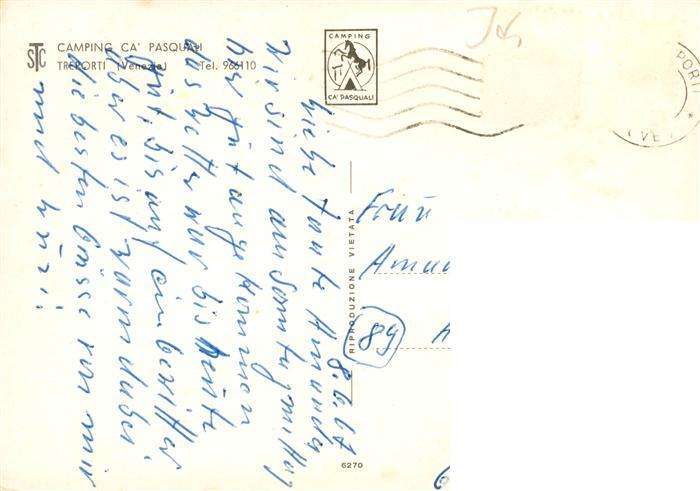 CAMPING CA' PASQUALI
TREPORTI (Venezia) Tel. 966110
STC
CAMPING
CA' PASQUALI
PORTI
(VE
8.6.67
Liebe Tante Amanda
Wir sind am Sonntagmittag
hier gut angekommen
das Wetter war bis heute
gut, bis auf ein
aber es ist warm dabei
die besten Grüsse von mir
und
RIPRODUZIONE VIETATA
Frau
Aman
89 A
6270